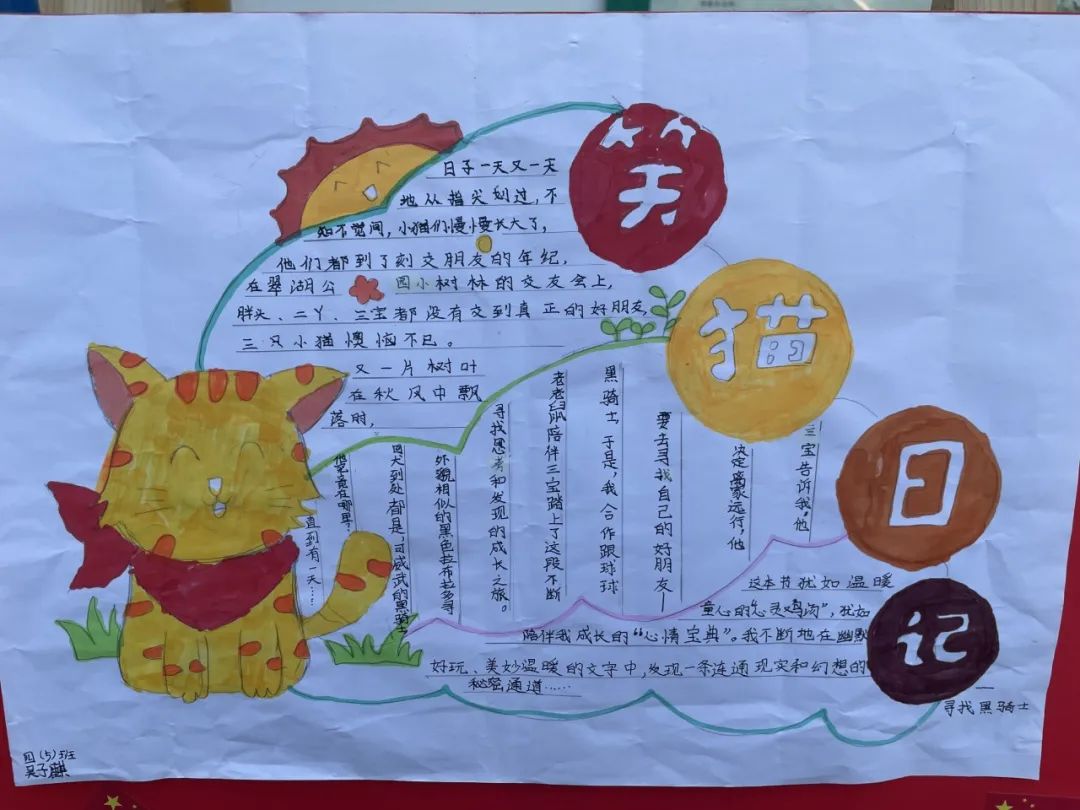 笑
猫
日
记
日子一天又一天
地从指尖划过,不
知不觉间,小猫们慢慢长大了,
他们都到了刻交朋友的年纪,
在翠湖公园小树林的交友会上,
胖头、二丫、三宝都没有交到真正的好朋友,
三只小猫懊恼不已。
又一片树叶
在秋风中飘
落时,
三宝告诉我,他
决定离家远行,他
要去寻找自己的好朋友—
黑骑士,于是,我合作跟球球
老老鼠陪伴三宝踏上了这段不断
寻找思考和发现的成长之旅。
外貌相似的黑色拉布拉多寻
回犬到处都是,可威武的黑骑士
他究竟在哪里?
直到有一天……
这本书犹如温暖
童心的“心灵鸡汤”,犹如
陪伴我成长的“心情宝典”。我不断地在幽默
好玩、美妙温暖的文字中,发现一条连通现实和幻想的
秘密通道……
—
寻找黑骑士
四(5)班
吴子麒